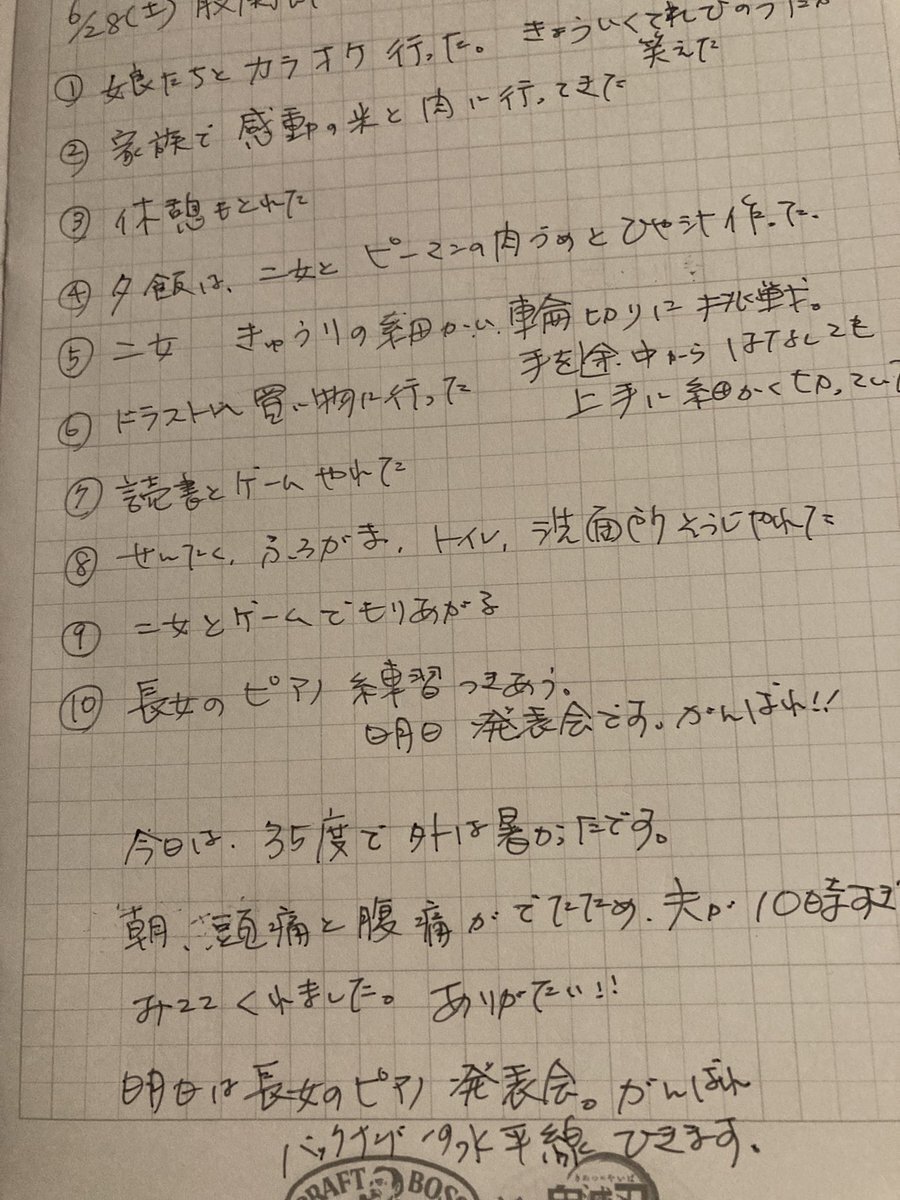 6/28(土)
① 女娘たちとカラオケ行った。きょういくてれびのうたが
笑えた
② 家族で感動の米と肉に行ってきた
③ 休憩もとれた
④ 夕飯は、二女とピーマンの肉うめとひや汁作った。
⑤ 二女 きゅうりの細かい輪切りに挑戦。
手を途中からはなしても
上手に細かく切っていて
⑥ ドラストへ買い物に行った
⑦ 読書とゲームやれた
⑧ せんたく、ふろがま、トイレ、洗面所そうじやれた
⑨ 二女とゲームでもりあがる
⑩ 長女のピアノ練習つきあう。
明日発表会です。がんばれ!!
今日は、35度で外は暑かったです。
朝、頭痛と腹痛がでてたため、夫が10時すぎ
みててくれました。ありがたい!!
明日は長女のピアノ発表会。がんばれ
バックナンバーの水平線ひきます。
CRAFT BOSS
きめつのやいば
鬼滅刃